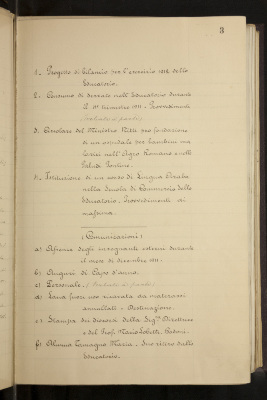 3
1. Progetto di bilancio per l'esercizio 1912 dello
Educatorio.
2. Consumo di derrate nell'Educatorio durante
il 3° trimestre 1911. Provvedimenti
(trattata a parte)
3. Circolare del Ministro Nitti per fondazione
di un ospedale per bambini ma
larici nell'Agro Romano e nelle
Paludi Pontine.
4. Istituzione di un corso di Lingua Araba
nella Scuola di Commercio dello
Educatorio. Provvedimenti di
massima.
(Comunicazioni)
a) Assenze degli insegnanti esterni durante
il mese di dicembre 1911.
b) Auguri di Capo d'anno.
c) Personale. (trattata a parte)
d) Lana fuori uso ricavata da materassi
annullati - Destinazione.
e) Stampa dei discorsi della Sig.ra Direttrice
e del Prof. Mario
f) Alunna Tamagno Maria. Suo ritiro dallo
Educatorio.